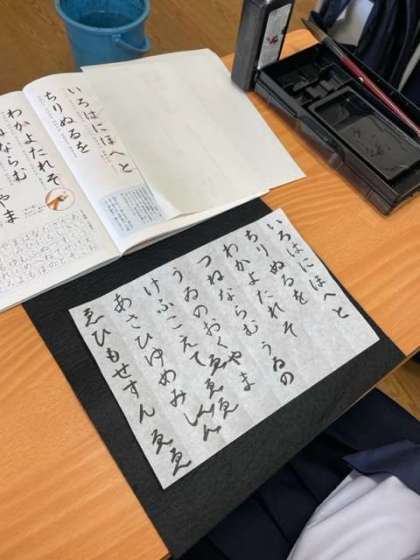 いろはにほへと
ちりぬるを
わかよたれそ
ねならむ
やま
いろはにほへと
ちりぬるを
わかよたれそ うゐの
つねならむ
うゐのおくやま
けふこえて ゑゑ
あさひゆめみしん
ゑひもせすん ゑゑ